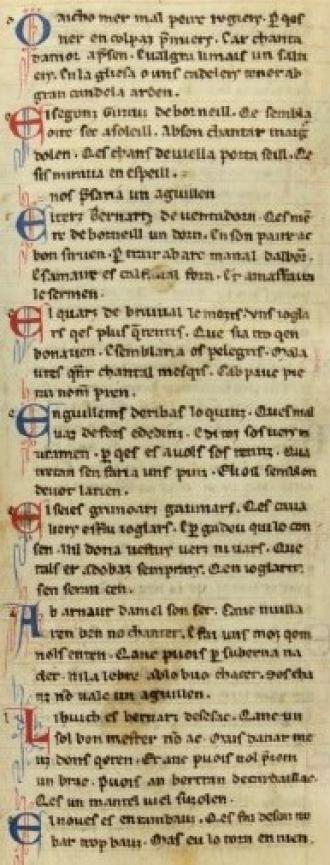 aicho mer mal peire rogiers. Per qes
ner en colpaz primiers. Car chanta
damor apreson. Eualgra limais un salti
ery. En la gliesa o uns candelers tener ab
gran candela arden.
El segonz Giraut de borneill. Qe sembla
oire sec asoleill. Ab son chantar maigre
dolen. Qes chans de uiella porta seill. Qe
sis miraua en espeill.
nos prsaria un aguillen
El terz Bernartz de uentadorn. Qes men
re de borneill un dorn. En son paire ac
bon siruen. Per trair ab arc manal dalborn.
E sa maire es calfaua l forn. Et amassaua
le sermen.
El quarz de briuial lemozis. Uns iogla
rs qes plus querentis. Que sia tro qen
bonauen. E semblaria os pelegris. Mala
utes quan chantal mesqis. Cab pauc pie
taz nom pren.
En guillems de ribas lo quinz. Ques mal
uaz defors e dedinz. E di toz sos uers ra
ucamen. Per qes es auols sos retinz. Qua
tretan sen faria uns pinz. El oill semblon
deuor larien.
El seises grimoarz gaumars. Qes caua
liers e fai ioglars. E per ga deu qui lo con
sen. Nil dona uestirs uers ni uars. Que
tals er adobaz sempriars. Qen ioglarit
sen seran cen.
Ab arnaut daniel son set. Canc nuilla
ren ben no chantet. E fai uns moz qom
nols enten. Canc puois per suberna na
det. Ni la lebre ab lo buo chacet. Sos cha
nz no uale un aguillen.
L ibuich es bernarz desesac. Canc un
sol bon mester no ac. Mais danar me
uz dons qeren. Et anc puois nol prezem
un brac. Puois an bertran de cardaillac.
Qes un mantel uiel suzolen.
El noues es en raimbauz. Qes fai de son tro
bar trop bauz. Mas eu lo torn en nien.